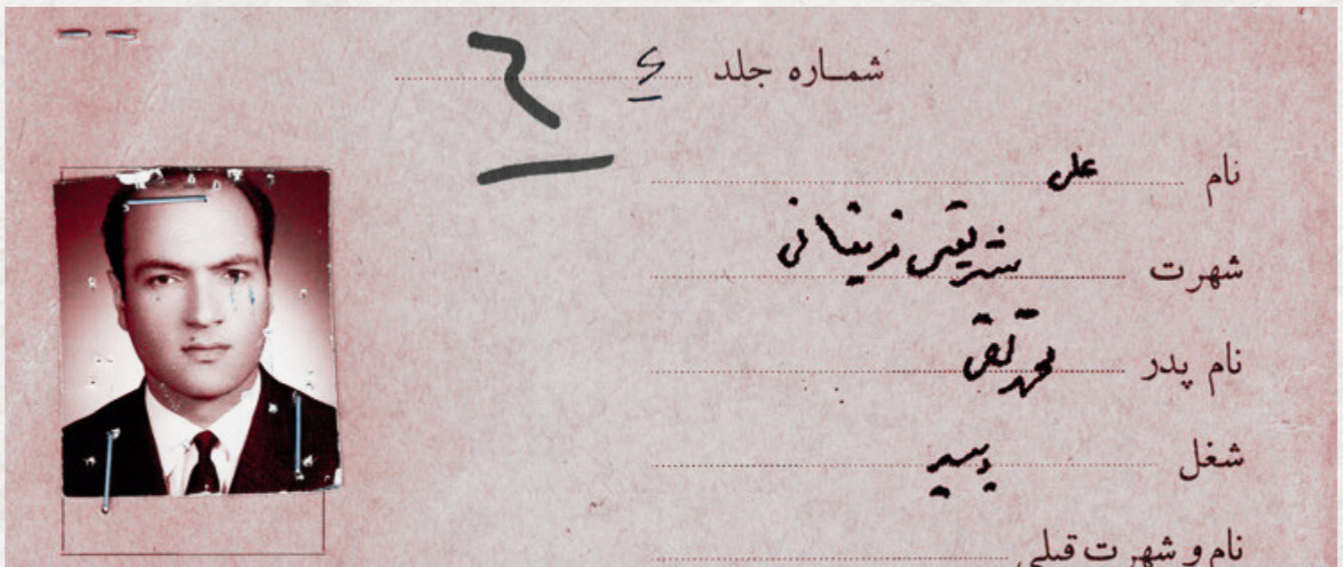 شماره جلد ٤ ٦
نام علی
شهرت شریعتی مزینانی
نام پدر محمد تقی
شغل
نام و شهرت قبلی